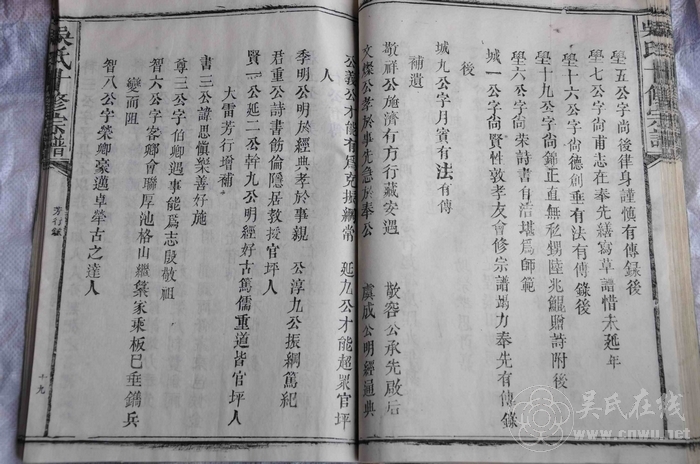 學五公字尚後律身謹慎有傳錄後
學六公字尚甫志在奉先繕寫草譜惜未延年
學十六公字尚德創垂有法有傳錄後
學十九公字尚錦正直無私甥陸兆鯤贈詩附後
學六公字尚榮詩書自浯堪為師範
城一公字尚賢性敦孝友會修宗譜竭力奉先有傳錄
後
城九公字月賓有法有傳
補遺
敬祥公施濟有方行藏安遇
敬容公承先啟后
文燦公孝於事先急於奉公
虞成公明經通典
公義公才能有為克振綱常
延九公才能超眾官坪
人
季明公明於經典孝於事親
公淳九公振綱篤紀
君重公詩書飭倫隱居教授官坪人
賢一公延二公幹九公明經好古篤儒重道皆官坪人
大雷芳行增補
書三公諱思愼樂善好施
尊三公字伯卿遇事能為志殷敬祖
智六公字客卿會聯厚池格山繼棠家乘板巳垂鐫兵
變而阻
智八公字榮卿豪邁卓犖古之達人
吳氏十修宗譜
芳行錄
十九
吳氏十修宗譜
吴氏在线
www.cnwu.net